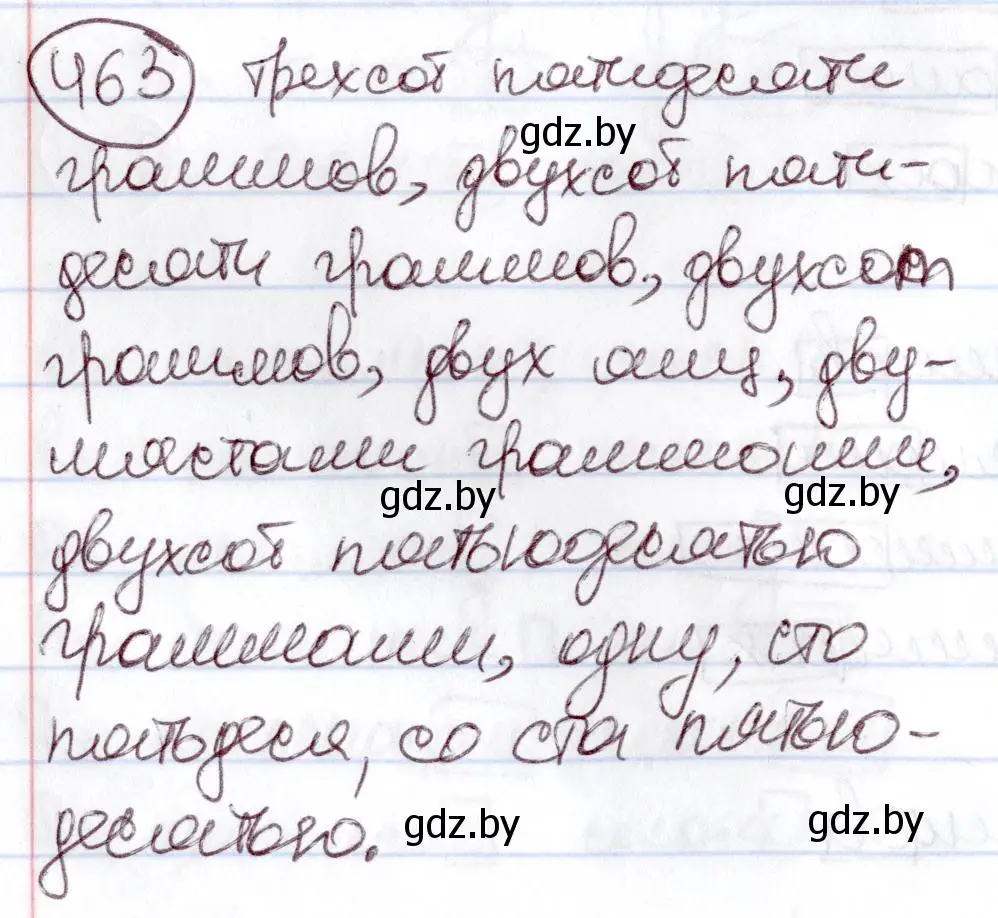 463 трехсот пятидесяти
gdz.by
граммов, двухсот пяти-
десяти граммов, двухсот
граммов, двух яиц, дву-
мястами граммами,
gdz.by gdz.by
двухсот пятьюдесятью
граммами, одну, сто
пятьдеся, со ста пятью-
десятью.
gdz.by gdz.by